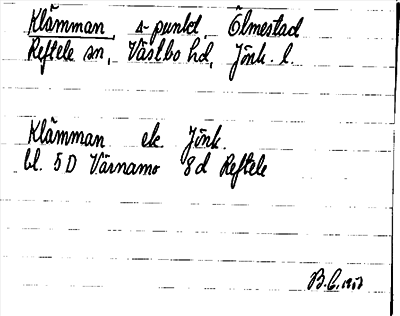 Klämman, s-punkt, Ölmestad
Reftele sn, Västbo hd, Jönk. l.
Klämman ek Jönk.
bl. 5D Värnamo 8d Reftele
B.C.